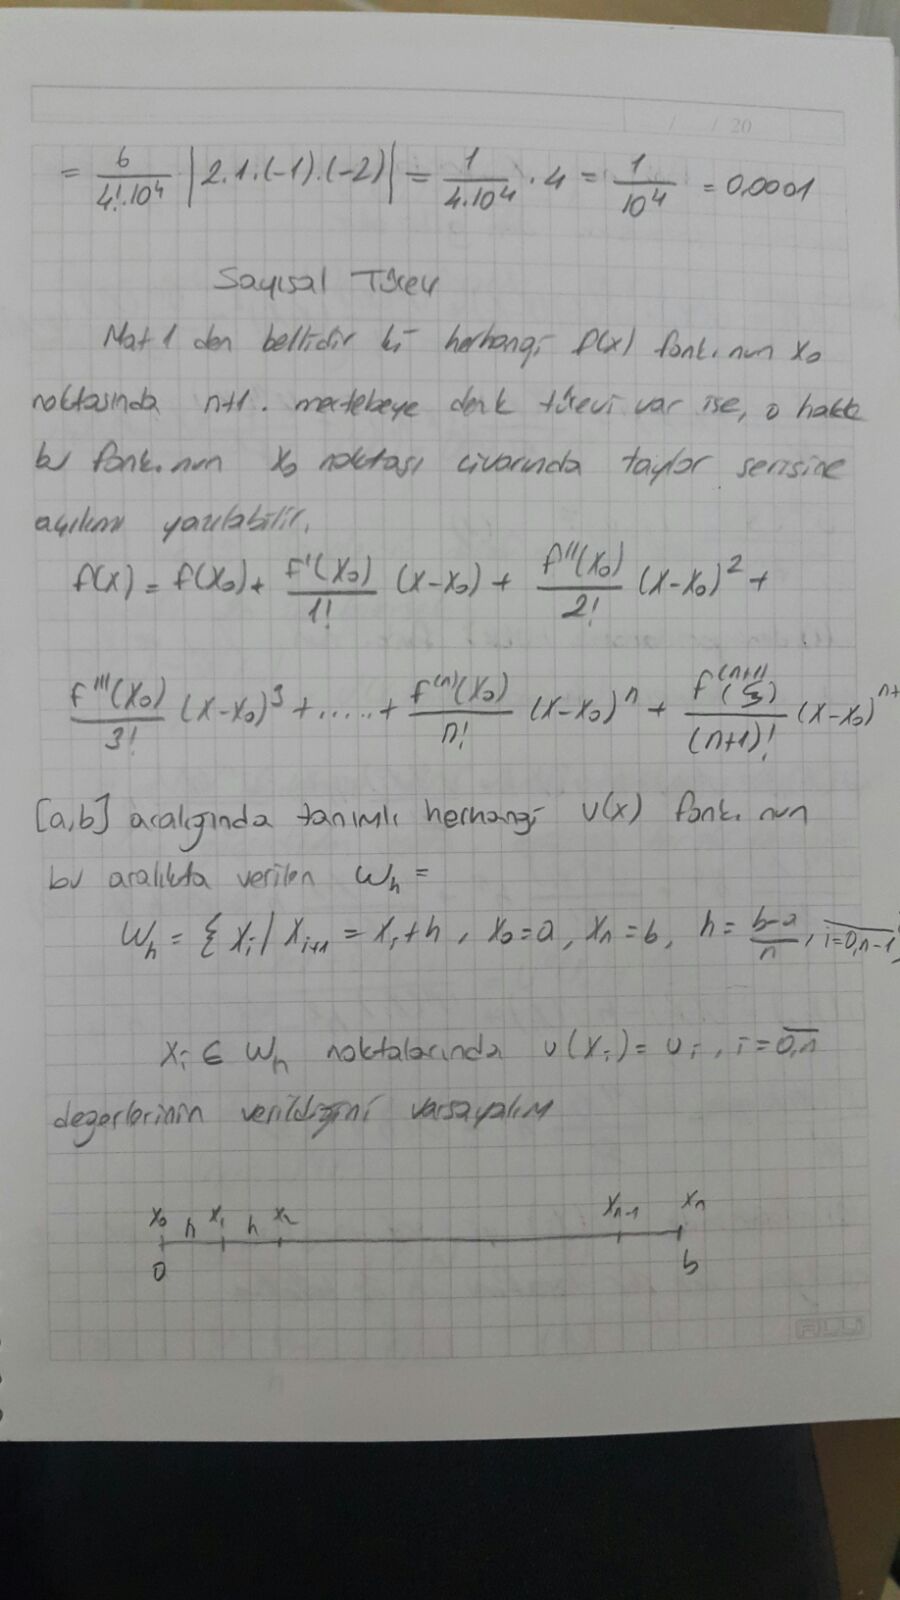 / / 20
= 6/(4!.10^4) |2.1.(-1).(-2)| = 1/(4.10^4) . 4 = 1/10^4 = 0,0001
Sayısal Türev
Mat 1 den bellidir ki herhangi f(x) fonk. nun x₀
noktasında n+1. mertebeye denk türevi var ise, o halde
bu fonk. nun x₀ noktası civarında taylor serisine
açılımı yazılabilir.
f(x) = f(x₀) + f'(x₀)/1! (x-x₀) + f''(x₀)/2! (x-x₀)² +
f'''(x₀)/3! (x-x₀)³ + ..... + f⁽ⁿ⁾(x₀)/n! (x-x₀)ⁿ + f⁽ⁿ⁺¹⁾(ξ)/(n+1)! (x-x₀)ⁿ⁺
[a,b] aralığında tanımlı herhangi u(x) fonk. nun
bu aralıkta verilen Wₕ =
Wₕ = { xᵢ / xᵢ₊₁ = xᵢ + h, x₀ = a, xₙ = b, h = (b-a)/n, i=0,n-1 }
xᵢ ∈ Wₕ noktalarında u(xᵢ) = uᵢ, i = 0,n
değerlerinin verildiğini varsayalım
x₀ h x₁ h x₂ xₙ₋₁ xₙ
a b